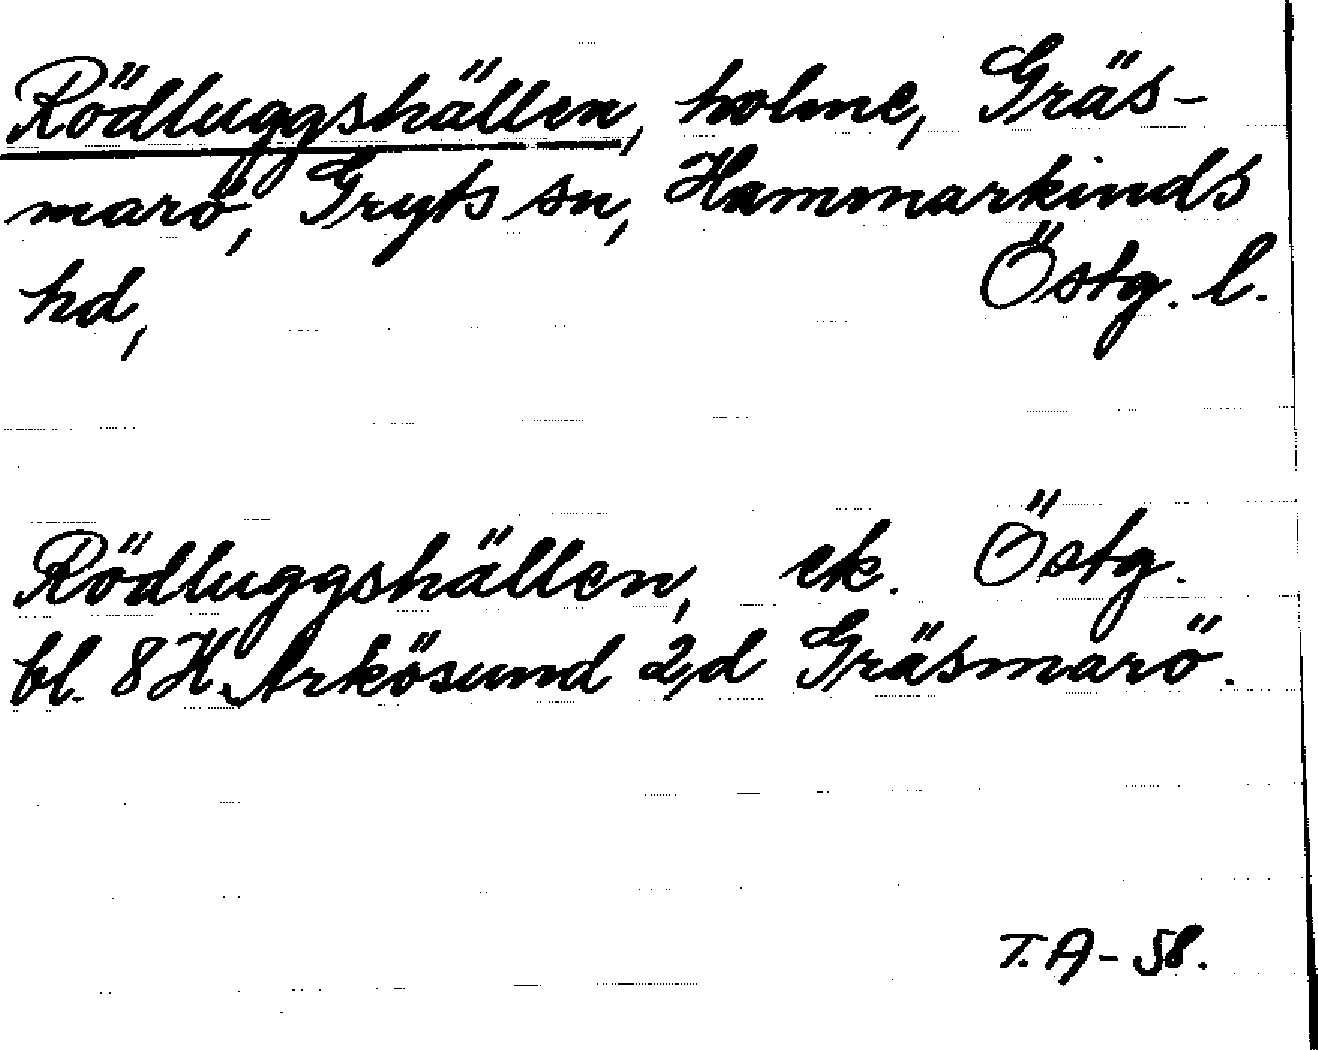 Rödluggshällen, holme, Gräs-
marö, Gryts sn, Hammarkinds
hd, Östg. l.
Rödluggshällen, ek. Östg.
bl. 8 H. Arkösund 2,d Gräsmarö.
T. A - 58.